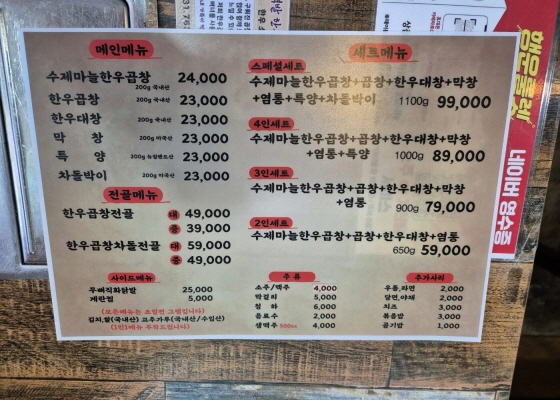 메인메뉴
수제마늘한우곱창 24,000
200g 국내산
한우곱창 200g 국내산 23,000
한우대창 200g 국내산 23,000
막 창 200g 미국산 23,000
특 양 200g 뉴질랜드산 23,000
차돌박이 200g 미국산 23,000
전골메뉴
한우곱창전골 대 49,000
중 39,000
한우곱창차돌전골 대 59,000
중 49,000
사이드메뉴
무뼈직화닭발 25,000
계란찜 5,000
(모든메뉴는 초벌된 그램입니다)
김치,쌀(국내산) 고추가루(국내산/수입산)
(1인)메뉴 부탁드립니다)
세트메뉴
스페셜세트
수제마늘한우곱창+곱창+한우대창+막창
+염통+특양+차돌박이 1100g 99,000
4인세트
수제마늘한우곱창+곱창+한우대창+막창
+염통+특양 1000g 89,000
3인세트
수제마늘한우곱창+곱창+한우대창+막창
+염통 900g 79,000
2인세트
수제마늘한우곱창+곱창+한우대창+염통
650g 59,000
주 류
소주/맥주 4,000
막걸리 5,000
청 하 6,000
음료수 2,000
생맥주 500cc 4,000
추가사리
우동,라면 2,000
당면,야채 2,000
치즈 3,000
볶음밥 3,000
공기밥 1,000
행운룰렛
네이버 영수증